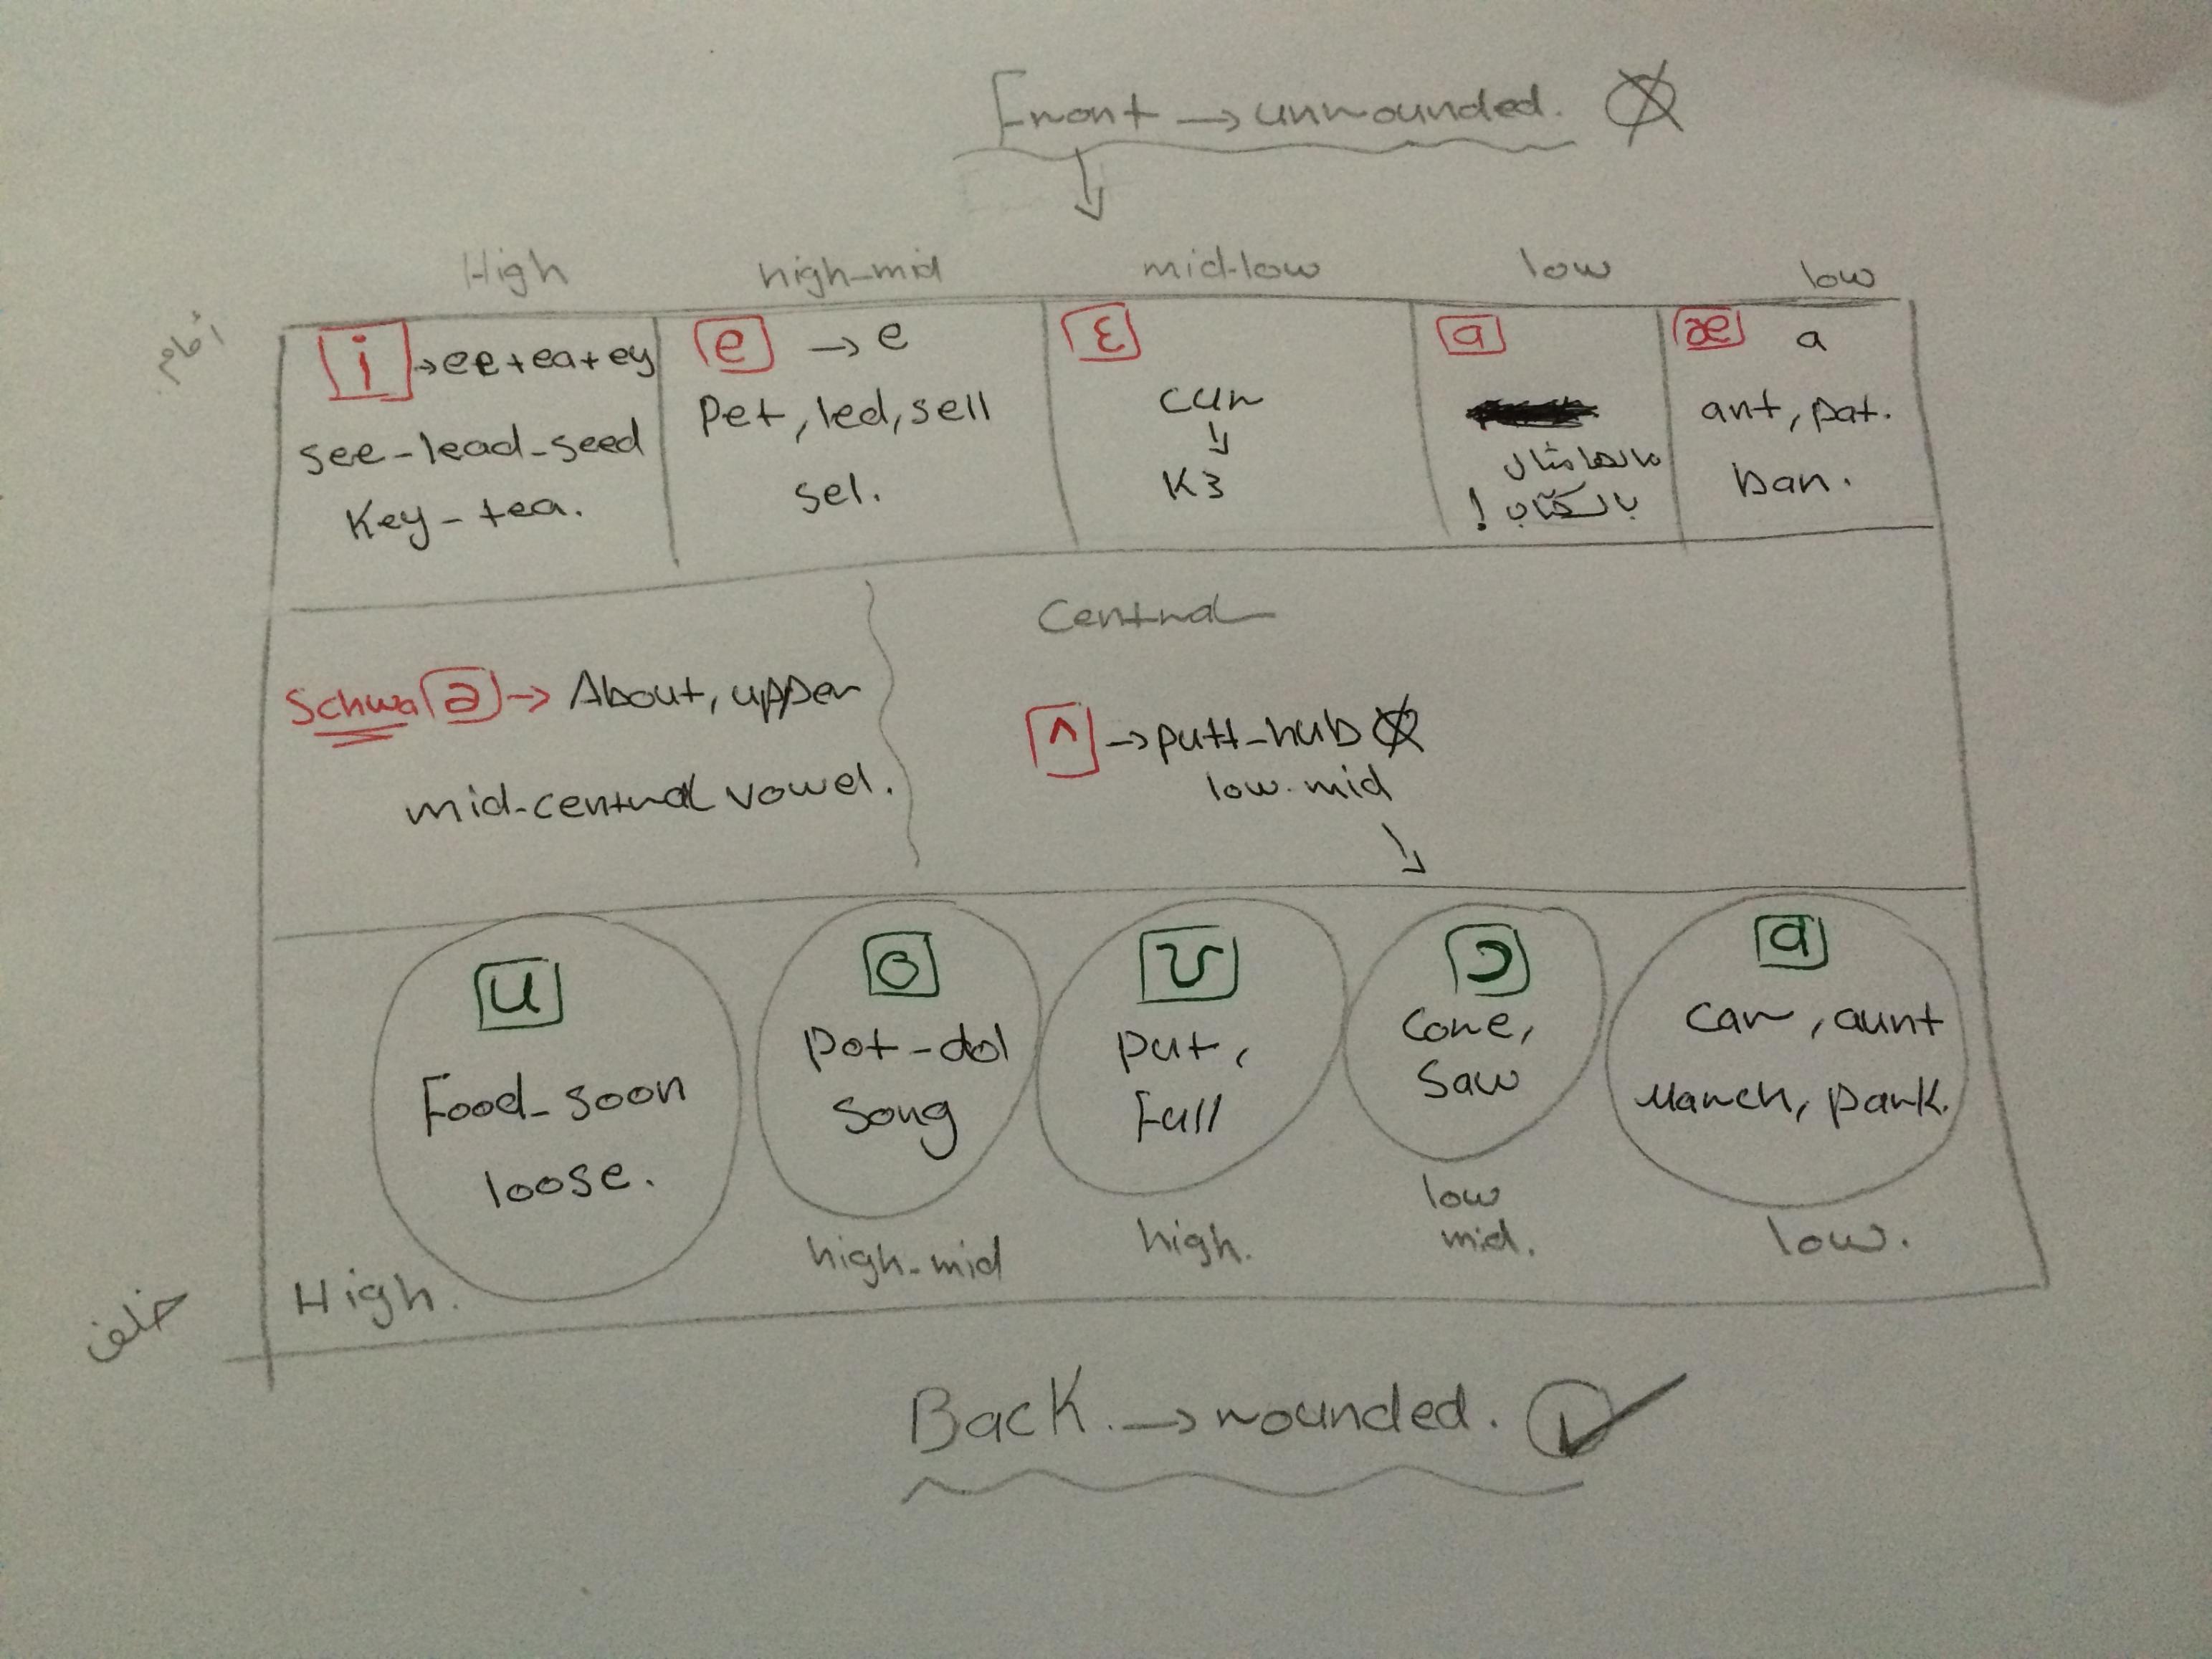 Front → unrounded.
High high-mid mid-low low low
أمام
i → ee+ea+ey
see-lead-seed
Key-tea.
e → e
Pet, led, sell
sel.
ɛ
cur
↓
Kɜ
a
مالها مثال
بالكتاب !
æ a
ant, pat.
ban.
Central
Schwa ə → About, upper
mid-central vowel.
ʌ → putt-hub
low-mid
u
Food-soon
loose.
High.
o
pot-dol
song
high-mid
ʊ
put,
Full
high.
ɔ
Core,
Saw
low
mid.
ɑ
Car, aunt
March, park.
low.
خلف
Back. → rounded.